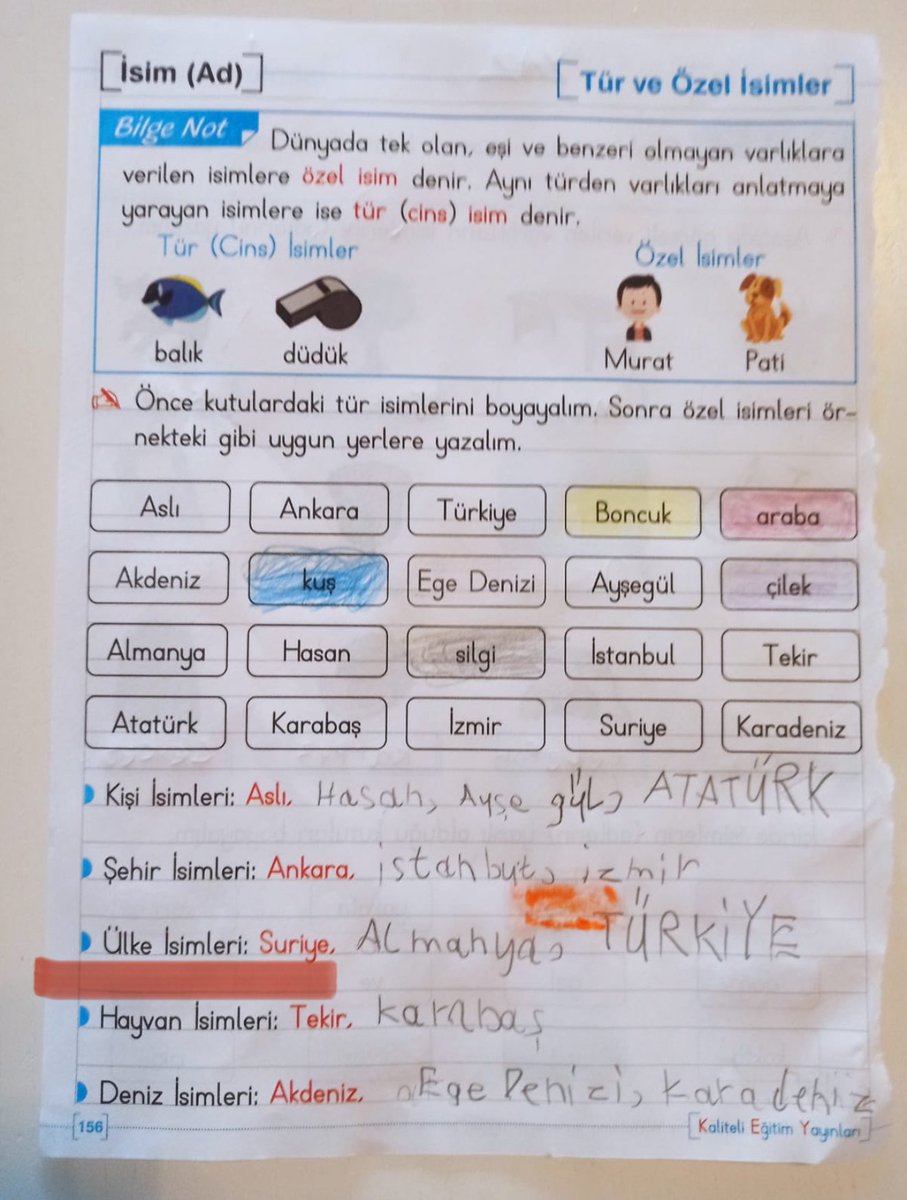 İsim (Ad)
Tür ve Özel İsimler
Bilge Not
Dünyada tek olan, eşi ve benzeri olmayan varlıklara
verilen isimlere özel isim denir. Aynı türden varlıkları anlatmaya
yarayan isimlere ise tür (cins) isim denir.
Tür (Cins) İsimler
Özel İsimler
balık düdük Murat Pati
Önce kutulardaki tür isimlerini boyayalım. Sonra özel isimleri ör-
nekteki gibi uygun yerlere yazalım.
Aslı Ankara Türkiye Boncuk araba
Akdeniz kuş Ege Denizi Ayşegül çilek
Almanya Hasan silgi İstanbul Tekir
Atatürk Karabaş İzmir Suriye Karadeniz
Kişi İsimleri: Aslı, Hasan, Ayşe gül, ATATÜRK
Şehir İsimleri: Ankara, istanbul, izmir
Ülke İsimleri: Suriye, ALmanya, TÜRKİYE
Hayvan İsimleri: Tekir, karabaş
Deniz İsimleri: Akdeniz, Ege Denizi, karadeniz
156
Kaliteli Eğitim Yayınları